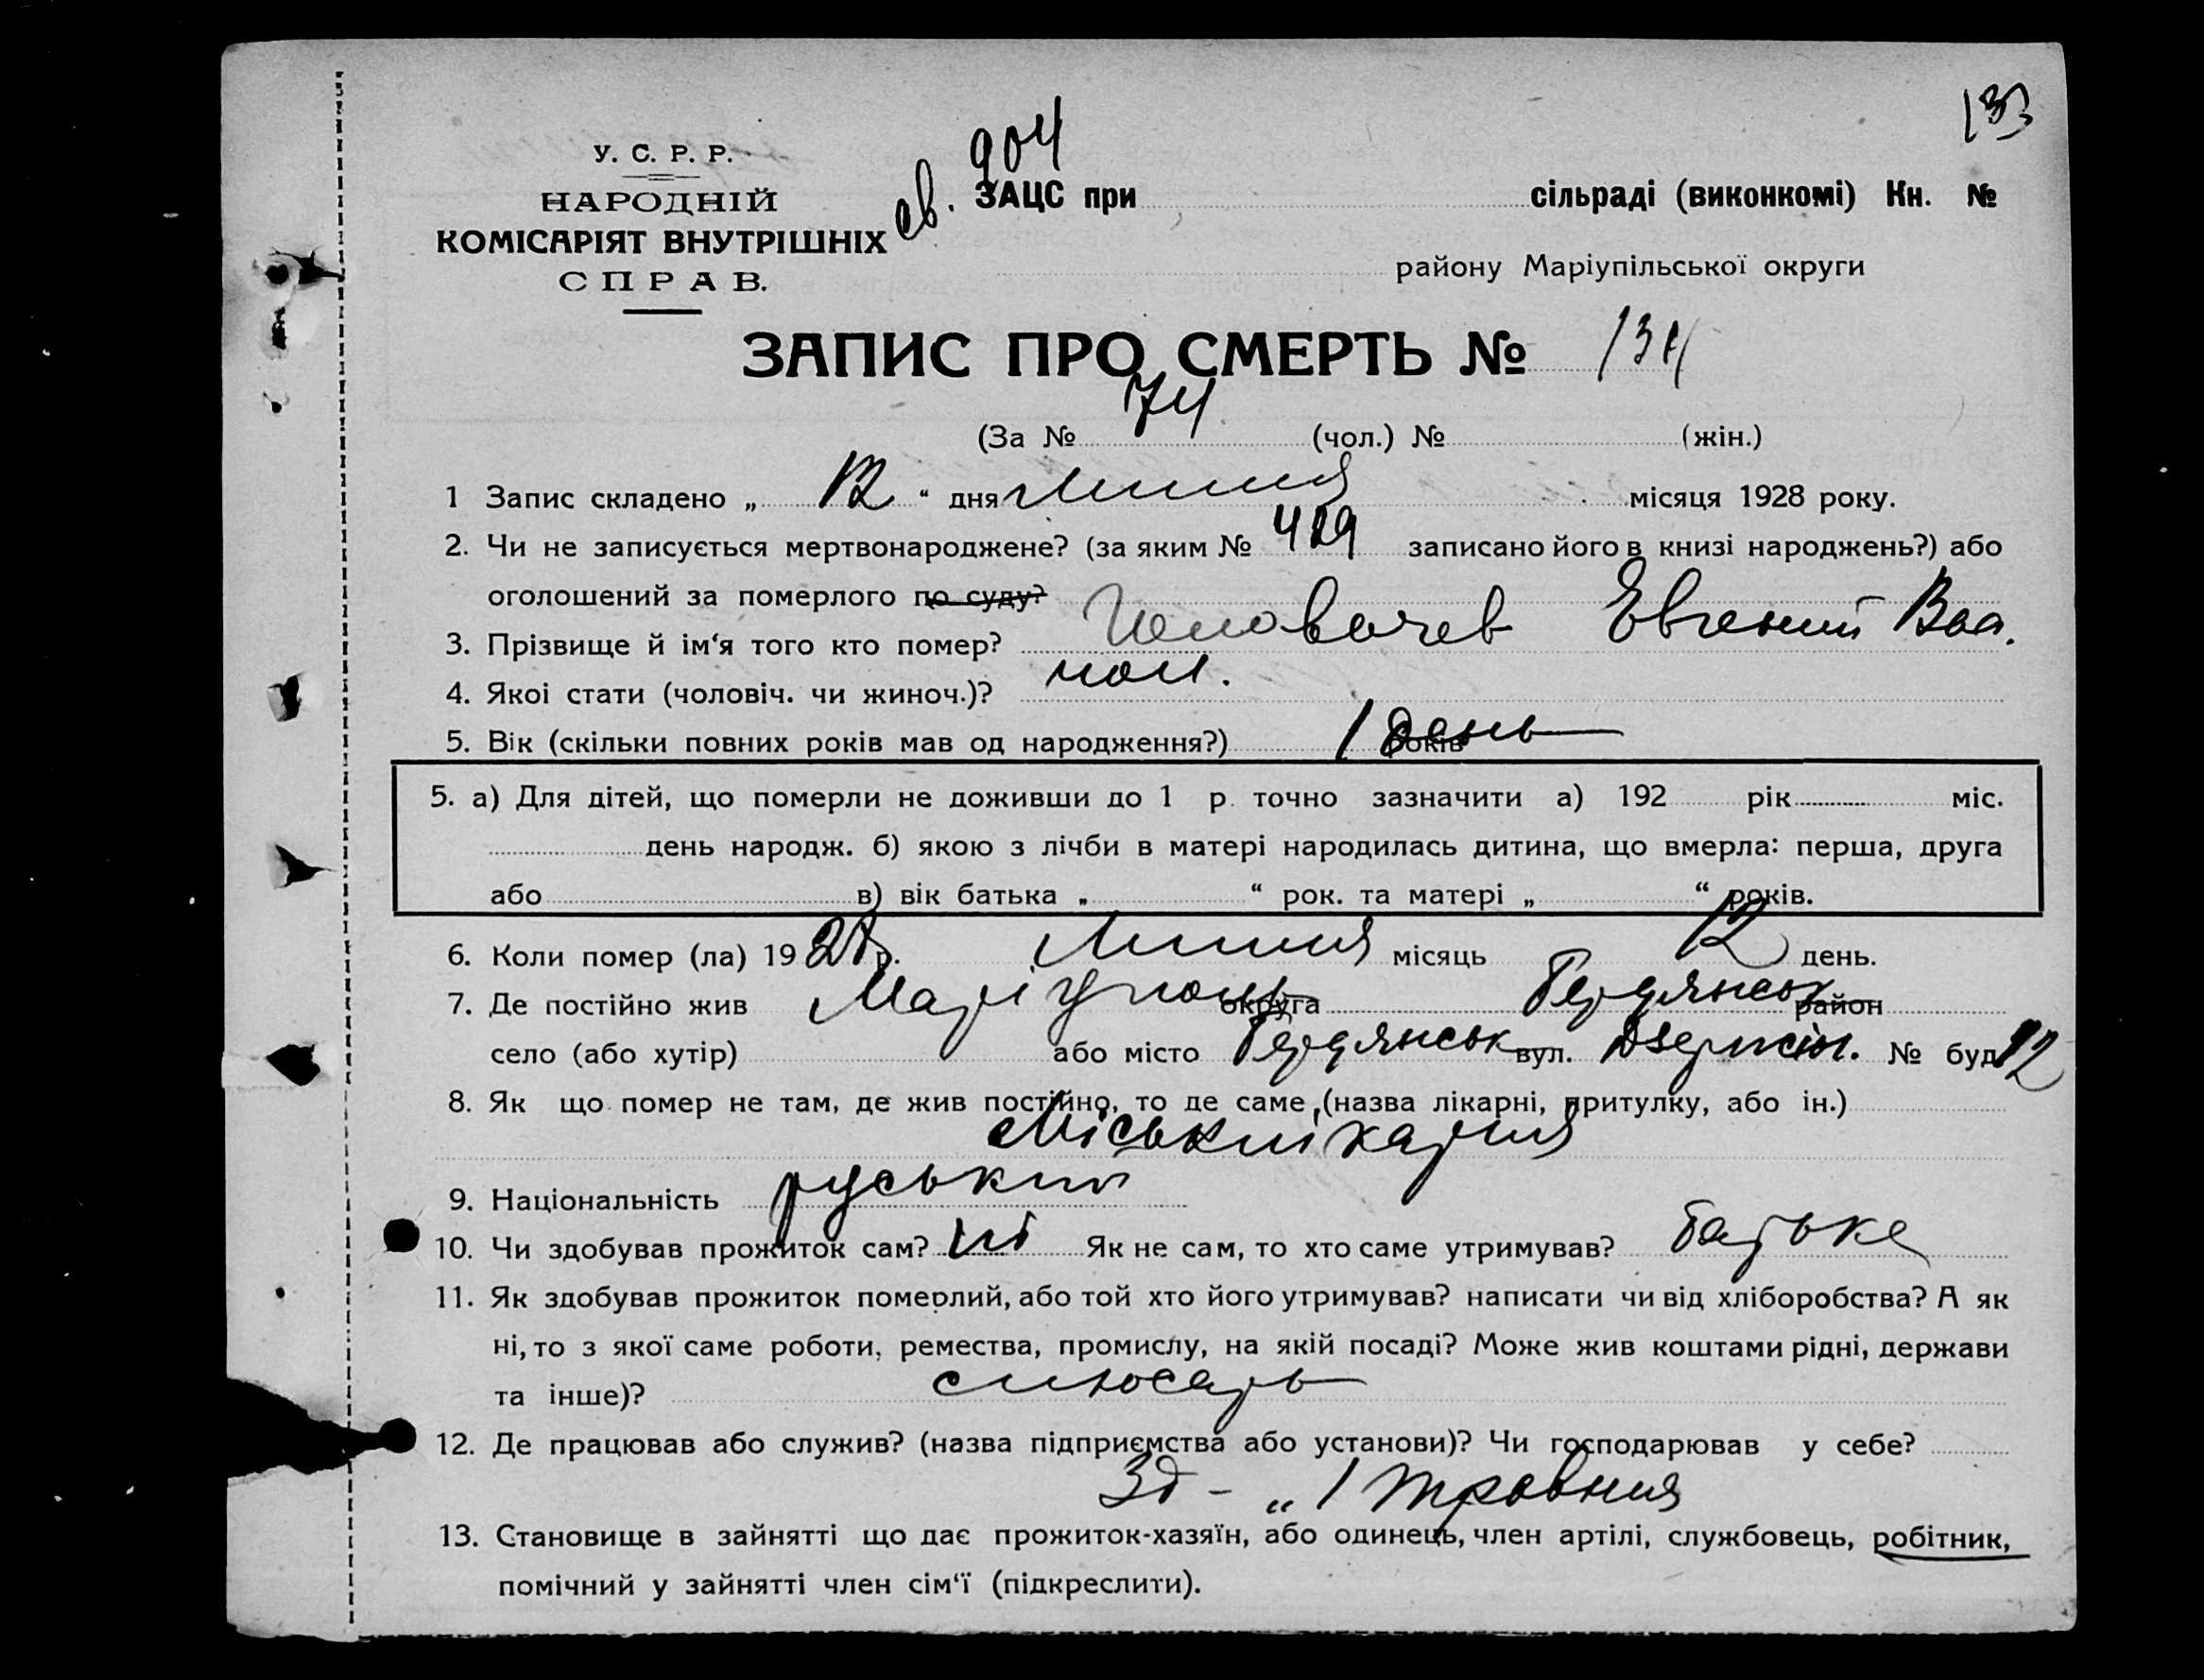 133
904
У. С. Р. Р.
НАРОДНІЙ
КОМІСАРІЯТ ВНУТРІШНІХ
СПРАВ.
св. ЗАЦС при сільраді (виконкомі) Кн. №
району Маріупільської округи
ЗАПИС ПРО СМЕРТЬ № 134
(За № 74 (чол.) № (жін.)
1 Запис складено „ 12 “ дня Липня місяця 1928 року.
2. Чи не записується мертвонароджене? (за яким № 429 записано його в книзі народжень?) або
оголошений за померлого по суду?
3. Прізвище й ім‘я того кто помер? Головачев Евгений Вас.
4. Якоі стати (чоловіч. чи жиноч.)? чол.
5. Вік (скільки повних років мав од народження?) 1 день років
5. а) Для дітей, що померли не доживши до 1 р. точно зазначити а) 192 рік міс.
день народж. б) якою з лічби в матері народилась дитина, що вмерла: перша, друга
або в) вік батька „ “ рок. та матері „ “ років.
6. Коли помер (ла) 1928 р. Липня місяць 12 день.
7. Де постійно жив Маріуполь округа Бердянськ район
село (або хутір) або місто Бердянськ вул. Дзержин. № буд 12
8. Як що помер не там, де жив постійно, то де саме (назва лікарні, притулку, або ін.)
Міськлікарня
9. Національність руський
10. Чи здобував прожиток сам? ні Як не сам, то хто саме утримував? батько
11. Як здобував прожиток померлий, або той хто його утримував? написати чи від хліборобства? А як
ні, то з якої саме роботи, ремества, промислу, на якій посаді? Може жив коштами рідні, держави
та інше)? слюсарь
12. Де працював або служив? (назва підприємства або установи)? Чи господарював у себе?
Зд - „ 1 травня
13. Становище в зайнятті що дає прожиток-хазяїн, або одинець, член артілі, службовець, робітник,
помічний у зайнятті член сім‘ї (підкреслити).